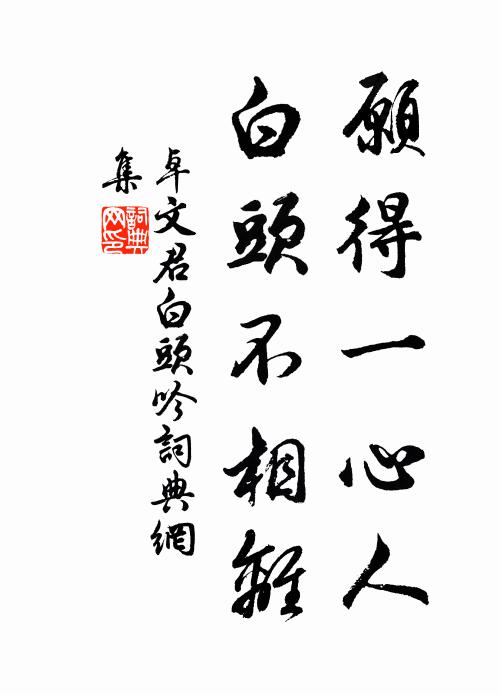 願得一心人
白頭不相離
卓文君白頭吟詞典網
集
詞典
网印